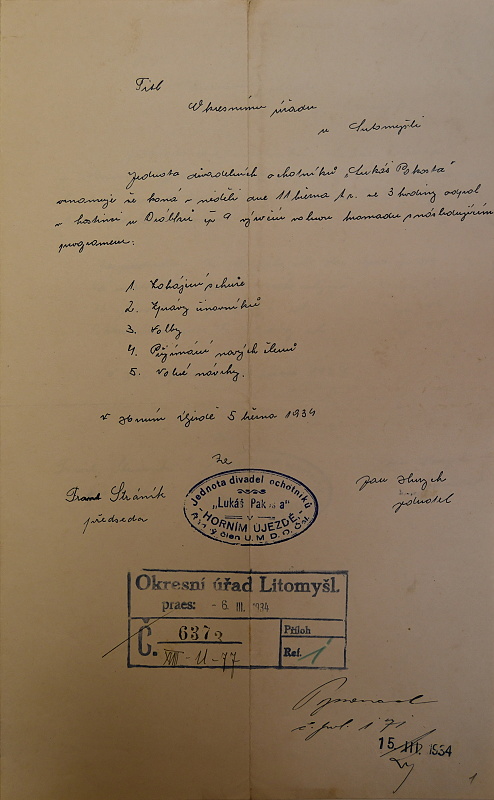 Titl
Okresnímu úřadu
v Litomyšli
Jednota divadelních ochotníků „Lukáš Pakosta"
oznamuje že koná v neděli dne 11 března t.r. ve 3 hodiny odpol
v hostinci u Drábků čp 9 výroční valnou hromadu s následujícím
programem:
1. Zahájení schůze
2. Zprávy činovníků
3. Volby
4. Přijímání nových členů
5. Volné návrhy.
V Horním Újezdě 5 března 1934
Za
Frant Stráník
předseda
Jednota divadel. ochotníků
„Lukáš Pak a"
V
HORNÍM ÚJEZDĚ.
člen Ú. M. D. O. Čsl.
Jan
jednatel
Okresní úřad Litomyšl.
praes: - 6. III. 1934
Č. 6372
VIII - U - 77
Příloh
Ref. 1
15. III. 1934
1